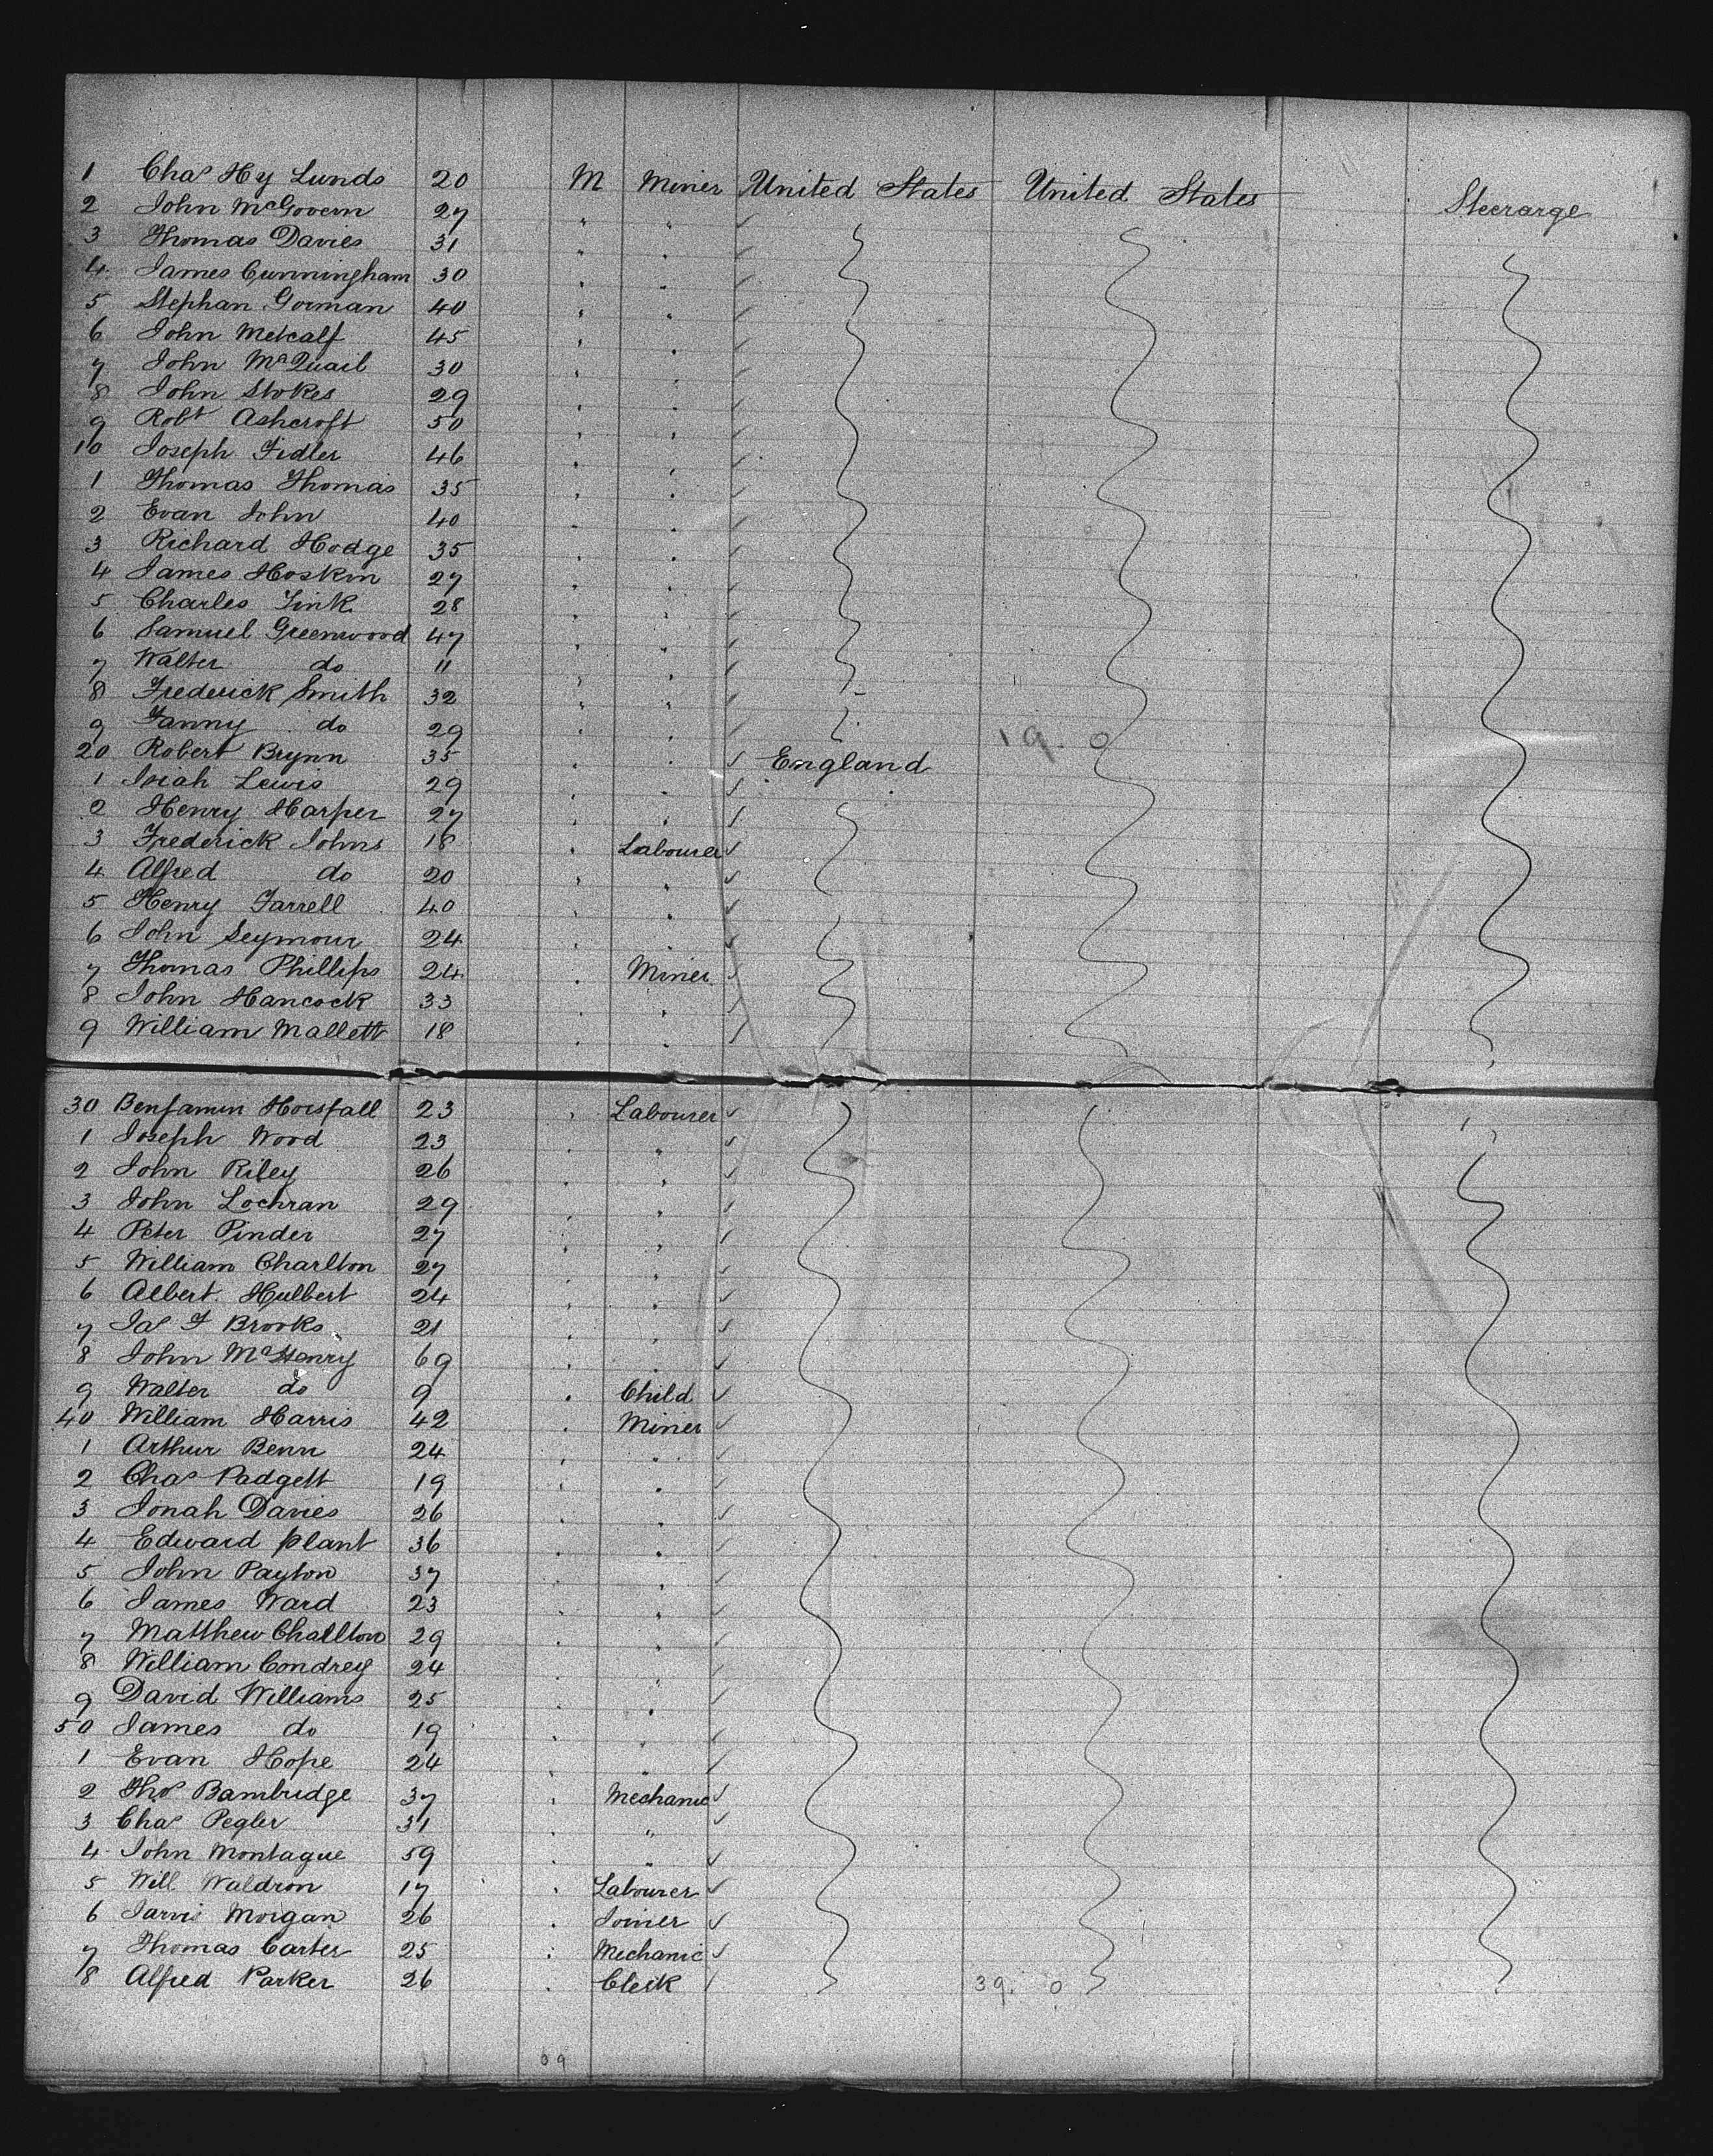 1 Chas Hy Lunds 20 M Miner United States United States Steerarge
2 John McGovern 27 " " ✓
3 Thomas Davies 31 " " ✓
4 James Cunningham 30 " " ✓
5 Stephan Gorman 40 " " ✓
6 John Metcalf 45 " " ✓
7 John McQuail 30 " " ✓
8 John Stokes 29 " " ✓
9 Robt Ashcroft 50 " " ✓
10 Joseph Fidler 46 " " ✓
1 Thomas Thomas 35 " " ✓
2 Evan John 40 " " ✓
3 Richard Hodge 35 " " ✓
4 James Hoskin 27 " " ✓
5 Charles Tink 28 " " ✓
6 Samuel Greenwood 47 " " ✓
7 Walter do 11 " " ✓
8 Frederick Smith 32 " " ✓
9 Fanny do 29 " " ✓ 19. 0
20 Robert Brynn 35 " " ✓ England
1 Isiah Lewis 29 " " ✓
2 Henry Harper 27 " " ✓
3 Frederick Johns 18 " Labourer ✓
4 Alfred do 20 " " ✓
5 Henry Farrell 40 " " ✓
6 John Seymour 24 " " ✓
7 Thomas Phillips 24 " Miner ✓
8 John Hancock 33 " " ✓
9 William Mallett 18 " " ✓
30 Benjamin Horsfall 23 " Labourer ✓
1 Joseph Wood 23 " " ✓
2 John Riley 26 " " ✓
3 John Lochran 29 " " ✓
4 Peter Pinder 27 " " ✓
5 William Charlton 27 " " ✓
6 Albert Hulbert 24 " " ✓
7 Jas F Brooks 21 " " ✓
8 John McHenry 69 " " ✓
9 Walter do 9 " Child ✓
40 William Harris 42 " Miner ✓
1 Arthur Benn 24 " " ✓
2 Chas Padgett 19 " " ✓
3 Jonah Davies 26 " " ✓
4 Edward Plant 36 " " ✓
5 John Payton 37 " " ✓
6 James Ward 23 " " ✓
7 Matthew Challton 29 " " ✓
8 William Condrey 24 " " ✓
9 David Williams 25 " " ✓
50 James do 19 " " ✓
1 Evan Hope 24 " " ✓
2 Thos Bambridge 37 " Mechanic ✓
3 Chas Pegler 31 " " ✓
4 John Montague 59 " " ✓
5 Will Waldron 17 " Labourer ✓
6 Jarvis Morgan 26 " Joiner ✓
7 Thomas Carter 25 " Mechanic ✓
8 Alfred Parker 26 " Clerk ✓ 39. 0